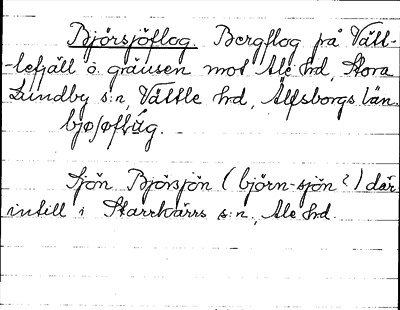 Björsjöflog. Bergflog på Vätt-
-lefjäll å gränsen mot Ale hrd, Stora
Lundby s:n, Vättle hrd, Älfsborgs län.
bjøſøflág.
Sjön Björsjön (björn-sjön?) där
intill i Starrkärrs s:n, Ale hrd.